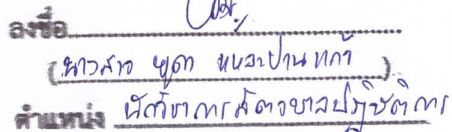 ลงชื่อ
(นางสาว ยูดา แก้ว)
ตำแหน่ง นักวิชาการสัตวบาลปฏิบัติการ